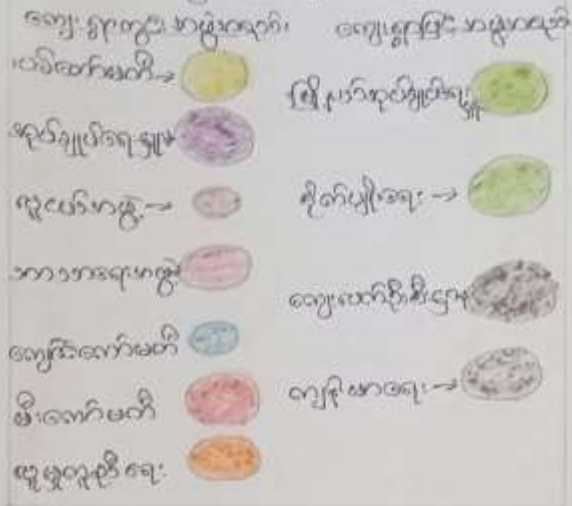 ကျေးရွာတွင်း အဖွဲ့အစည်း
ကော်မတီ →
အုပ်ချုပ်ရေးမှူး
လူငယ်အဖွဲ့ →
ဘာသာရေးအဖွဲ့
ကျောင်းကော်မတီ
မီးကော်မတီ
လူမှုကူညီရေး
ကျေးရွာပြင်ပ အဖွဲ့အစည်း
မြို့နယ်အုပ်ချုပ်ရေးမှူး
စိုက်ပျိုးရေး →
ကျေးလက်ဦးစီးဌာန
ကျန်းမာရေး →